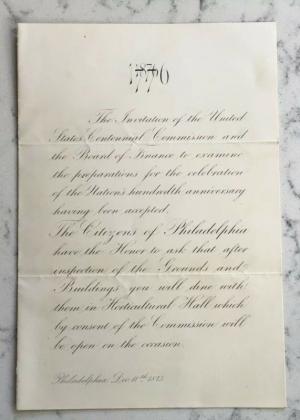 1776
The Invitation of the United
States Centennial Commission and
the Board of Finance to examine
the preparations for the celebration
of the Nations hundredth anniversary
having been accepted.
The Citizens of Philadelphia
have the Honor to ask that after
inspection of the Grounds and
Buildings you will dine with
them in Horticultural Hall which
by consent of the Commission will
be open on the occasion.
Philadelphia Dec. 11th 1875